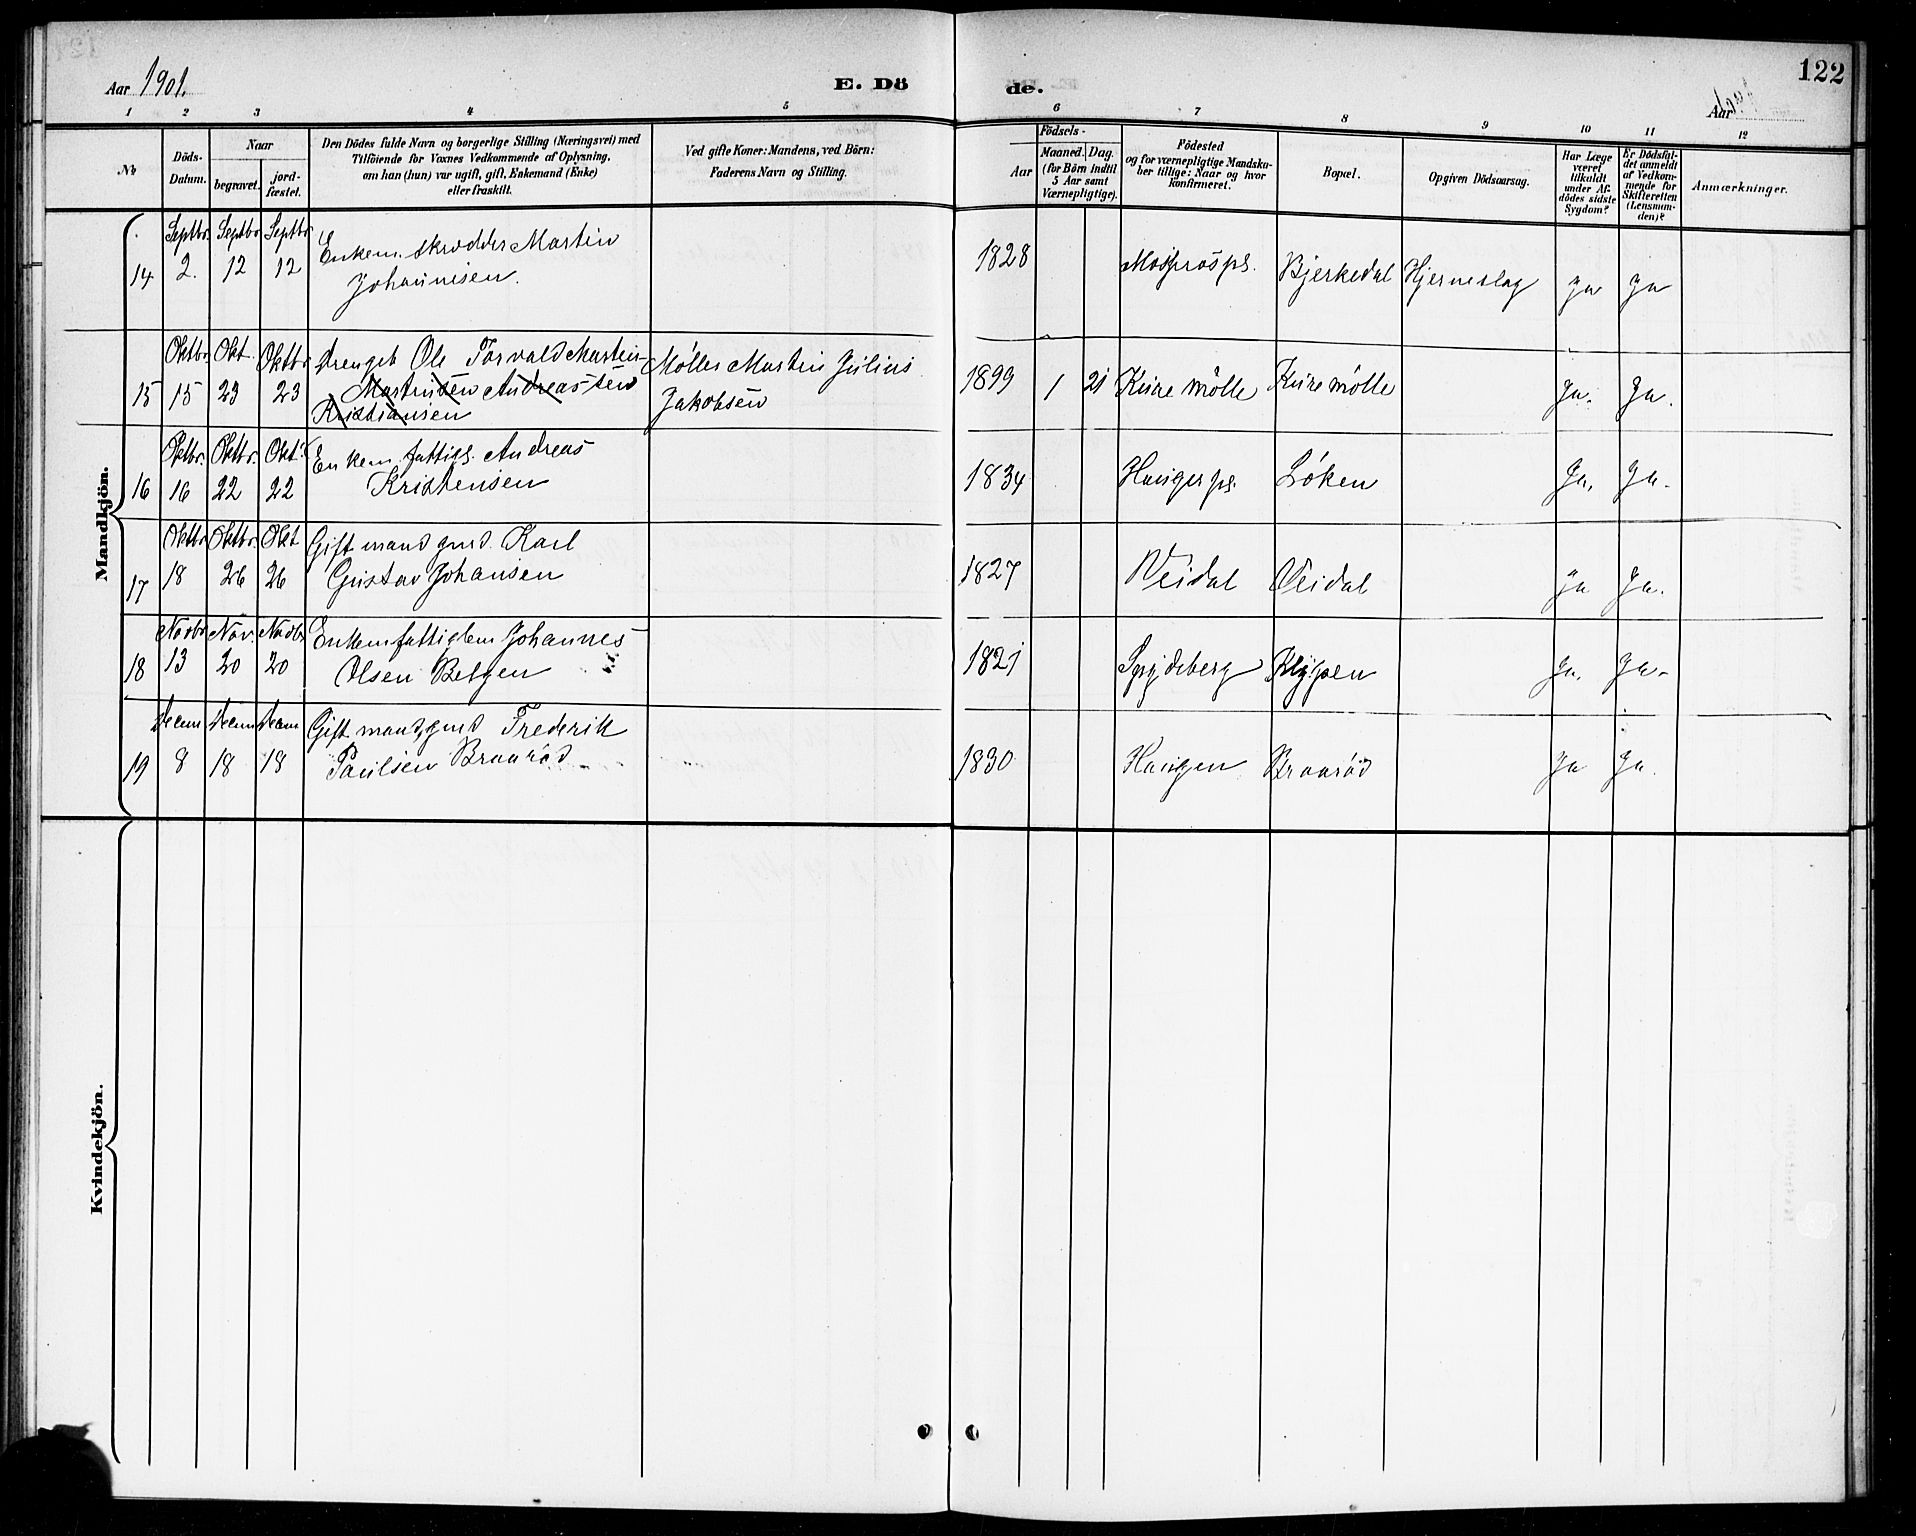 Aar 1901.
E. Dö
de.
Aar
122
1 2 3 4 5 6 7 8 9 10 11 12
No
Döds-
Datum.
Naar
begravet.
jord-
fæstet.
Den Dödes fulde Navn og borgerlige Stilling (Næringsvei) med
Tilföiende for Voxnes Vedkommende af Oplysning,
om han (hun) var ugift, gift, Enkemand (Enke)
eller fraskilt.
Ved gifte Koner: Mandens, ved Börn:
Faderens Navn og Stilling.
Födsels-
Aar
Maaned. Dag.
(for Börn indtil
5 Aar samt
Værnepligtige).
Födested
og for værnepligtige Mandska-
ber tillige: Naar og hvor
konfirmeret.
Bopæl.
Opgiven Dödsaarsag.
Har Læge
været
tilkaldt
under Af-
dödes sidste
Sygdom?
Er Dödsfal-
det anmeldt
af Vedkom-
mende for
Skifteretten
(Lensman-
den)?
Anmærkninger.
Mandkjön.
14 Septbr. 2. Septbr 12 Septbr 12
Enkem. skrædder Martin
Johannisen.
1828 Bjerkedal Hjerneslag ja ja
15 Oktbr 15 Okt. 23 Oktbr 23
Drengeb Ole Torvald Martin-
Martinsen Andreas sen
Kristiansen
Møller Martin Julius
Jakobsen
1899 1 21 Kure mölle Kure mölle Ja. Ja.
16 Oktbr. 16 Oktbr. 22 Okt. 22
Enkem. fattigl. Andreas
Kristensen
1834 Løken Ja, Ja.
17 Oktbr 18 Oktbr. 26 Okt 26
Gift mand grd. Karl
Gustav Johansen
1827 Veidal Veidal Ja Ja.
18 Novbr 13 Nov. 20 Novbr 20
Enkem fattiglem Johannes
Olsen
1821 Spydeberg Klypen Ja, Ja-
19 Decem 8 Decem 18 Decem 18
Gift mand, grd Frederik
Paulsen Braaröd
1830 Haugen Braaröd Ja Ja.
Kvindekjön.